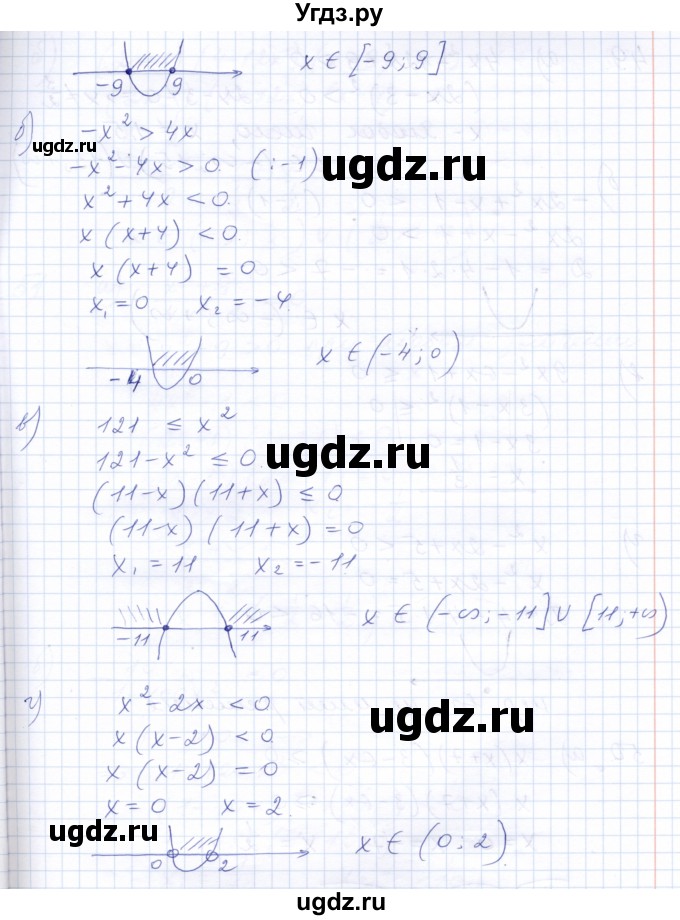 Угдз.ру
x ∈ [-9; 9]
-9 9
б) -x² > 4x
ugdz.ru
-x² - 4x > 0. (:-1)
ugdz.ru
x² + 4x < 0.
x (x+4) < 0.
x (x+4) = 0
x₁ = 0 x₂ = -4.
ugdz.ru
-4 0
x ∈ (-4; 0)
в) 121 ≤ x²
ugdz.ru
121 - x² ≤ 0.
ugdz.ru
(11-x)(11+x) ≤ 0
(11-x) (11+x) = 0
x₁ = 11 x₂ = -11
ugdz.ru
-11 11
x ∈ (-∞; -11] ∪ [11; +∞)
г) x² - 2x < 0
ugdz.ru
x (x-2) < 0.
x (x-2) = 0
x = 0 x = 2.
ugdz.ru
0 2
x ∈ (0; 2)
ugdz.ru
ugdz.ru